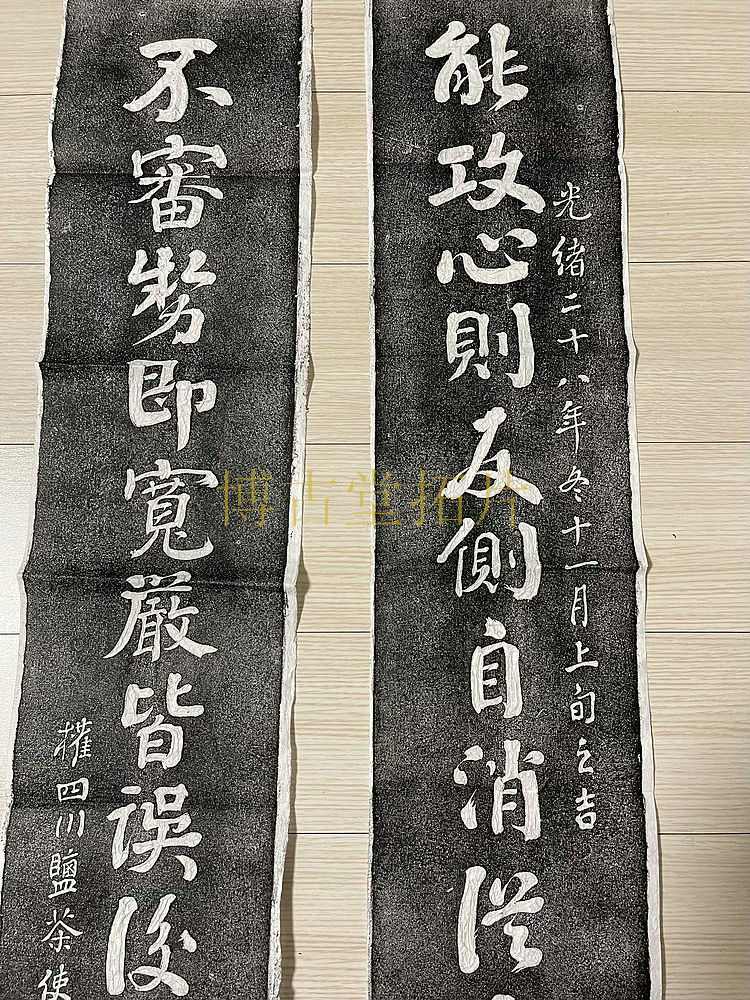 能攻心則反側自消從
光緒二十八年冬十一月上旬之吉
不審勢即寬嚴皆誤後
權四川鹽茶使
博古堂拓片